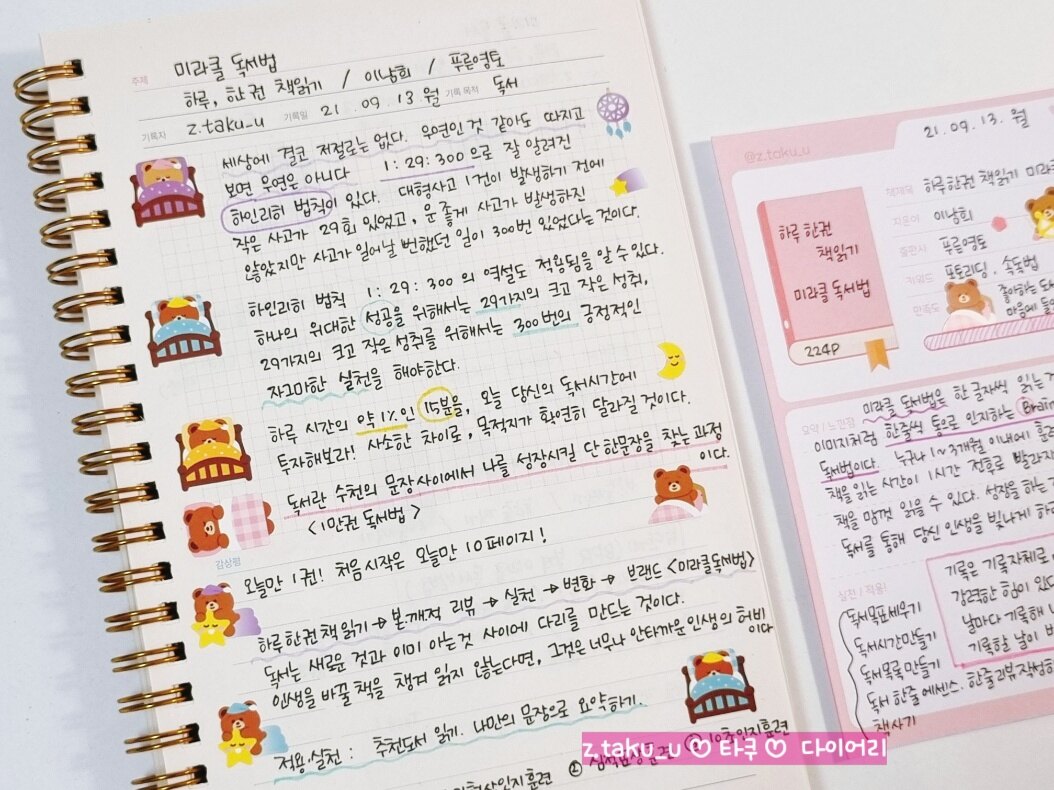 주제 미라클 독서법
하루, 한 권 책읽기 / 이남희 / 푸른영토
기록자 z.taku_u 기록일 21.09.13. 월 기록 목적 독서
세상에 결코 저절로는 없다. 우연인 것 같아도 따지고
보면 우연은 아니다 1:29:300 으로 잘 알려진
하인리히 법칙이 있다. 대형사고 1건이 발생하기 전에
작은 사고가 29회 있었고, 운 좋게 사고가 발생하진
않았지만 사고가 일어날 뻔했던 일이 300번 있었다는 것이다.
하인리히 법칙 1:29:300 의 역설도 적용됨을 알 수 있다.
하나의 위대한 성공을 위해서는 29가지의 크고 작은 성취,
29가지의 크고 작은 성취를 위해서는 300번의 긍정적인
자그마한 실천을 해야한다.
하루 시간의 약 1%인 15분을, 오늘 당신의 독서시간에
투자해보라! 사소한 차이로, 목적지가 확연히 달라질 것이다.
독서란 수천의 문장 사이에서 나를 성장시킬 단 한문장을 찾는 과정
이다.
<1만권 독서법>
감상평
오늘만 1권! 처음 시작은 오늘만 10페이지!
하루 한 권 책 읽기 → 본깨적 리뷰 → 실천 → 변화 → 브랜드 <미라클독서법>
독서는 새로운 것과 이미 아는 것 사이에 다리를 만드는 것이다.
인생을 바꿀 책을 챙겨 읽지 않는다면, 그것은 너무나 안타까운 인생의 허비
이다
적용·실천 : 추천도서 읽기. 나만의 문장으로 요약하기.
훈련 ②
@z.taku_u
21.09.13. 월
책제목 하루 한권 책읽기 미라
지은이 이남희
출판사 푸른영토
키워드 포토리딩, 속독법
만족도 좋아하는 도서
마음에
하루 한권
책읽기
미라클 독서법
224P
요약 / 느낀점
미라클 독서법은 한 글자씩 읽는
이미지처럼 한줄씩 통으로 인지하는 Brain
독서법이다. 누구나 1~3개월 이내에 훈련
책을 읽는 시간이 1시간 전후로 빨라지
책을 맘껏 읽을 수 있다. 성장을 하는
독서를 통해 당신 인생을 빛나게 하
실천 / 적용!
독서목표세우기
독서시간만들기
독서목록 만들기
독서 한줄 에센스. 한줄리뷰 작성하
책사기
기록은 기록 자체로
강력한 힘이 있다
날마다 기록해
기록할 날이
z.taku_u ♡ 타쿠 ♡ 다이어리